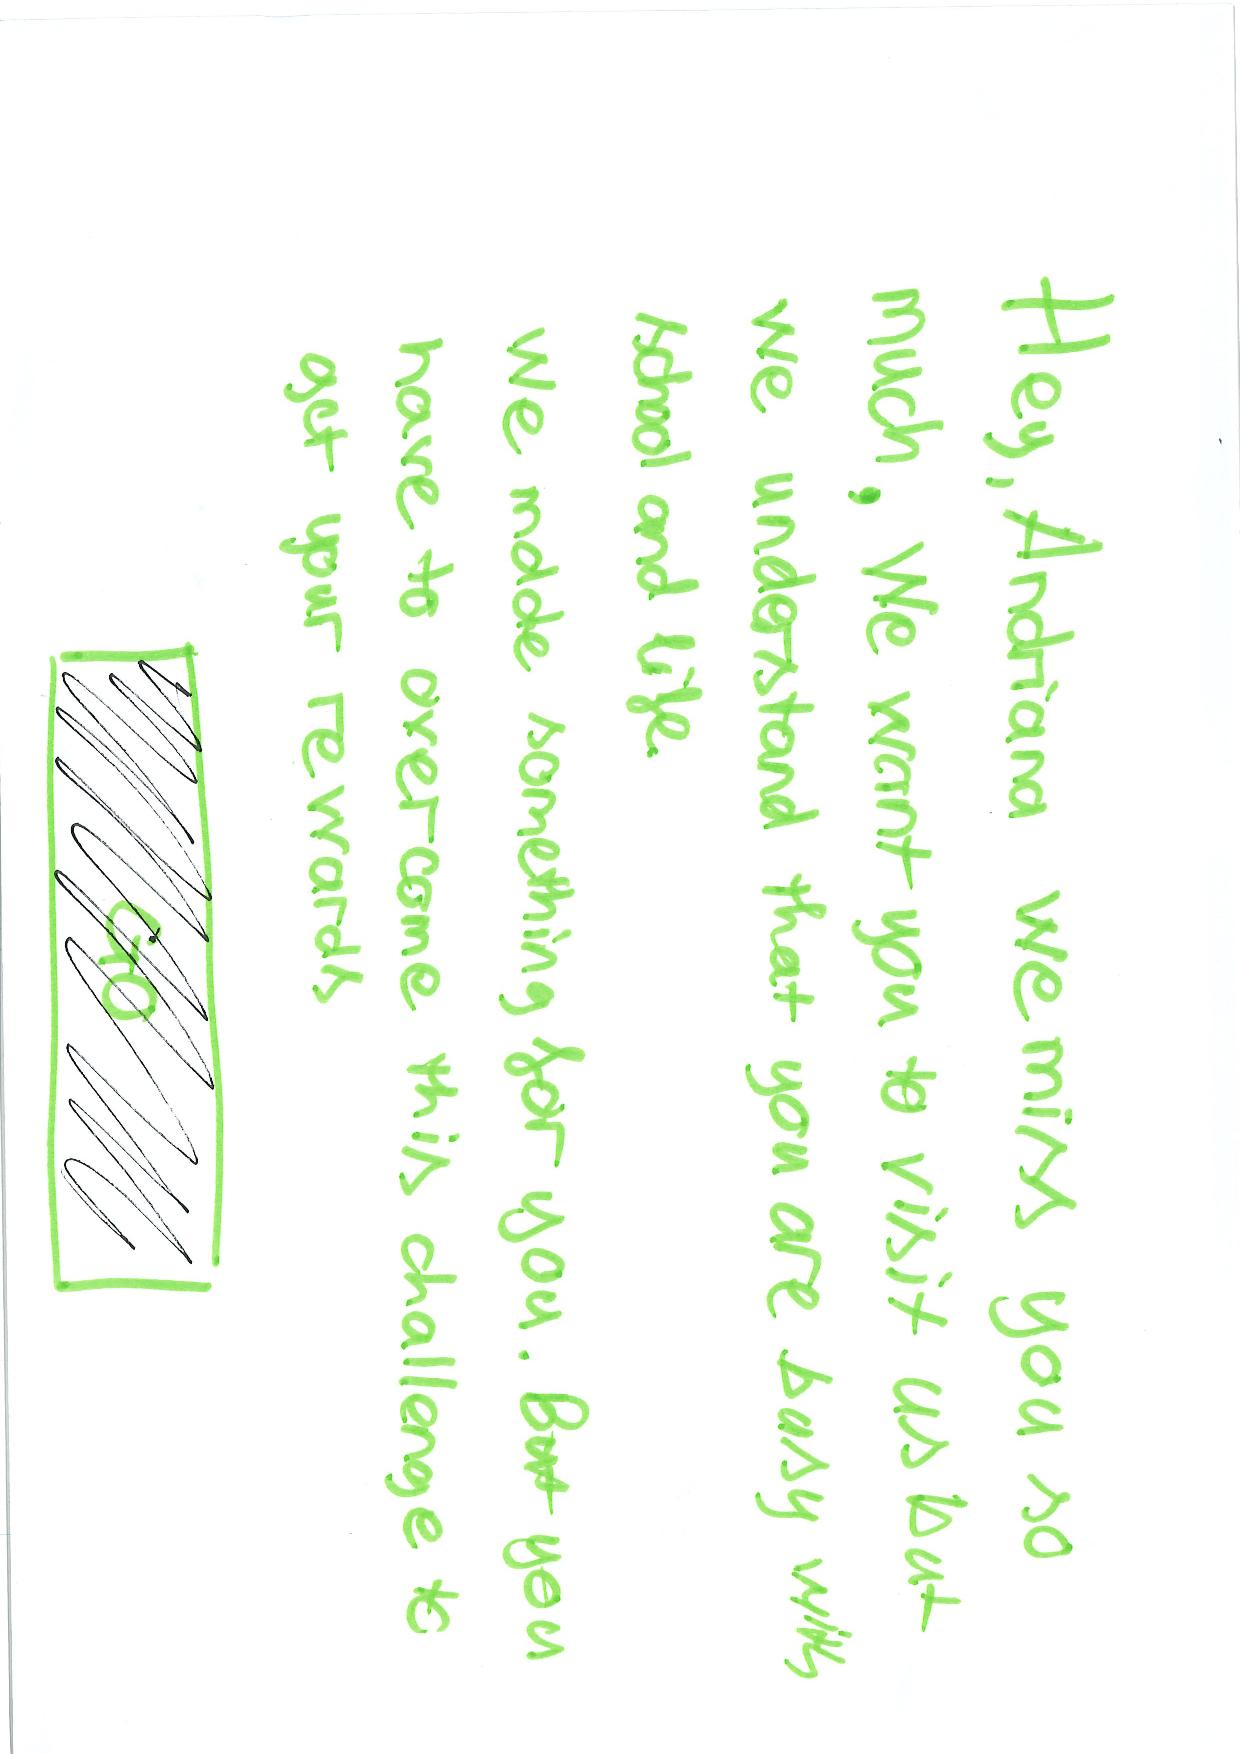 Hey, Andriana we miss you so
much, We want you to visit us but
we understand that you are busy with
school and life.
We made something for you. But you
have to overcome this challenge to
get your rewards
GO